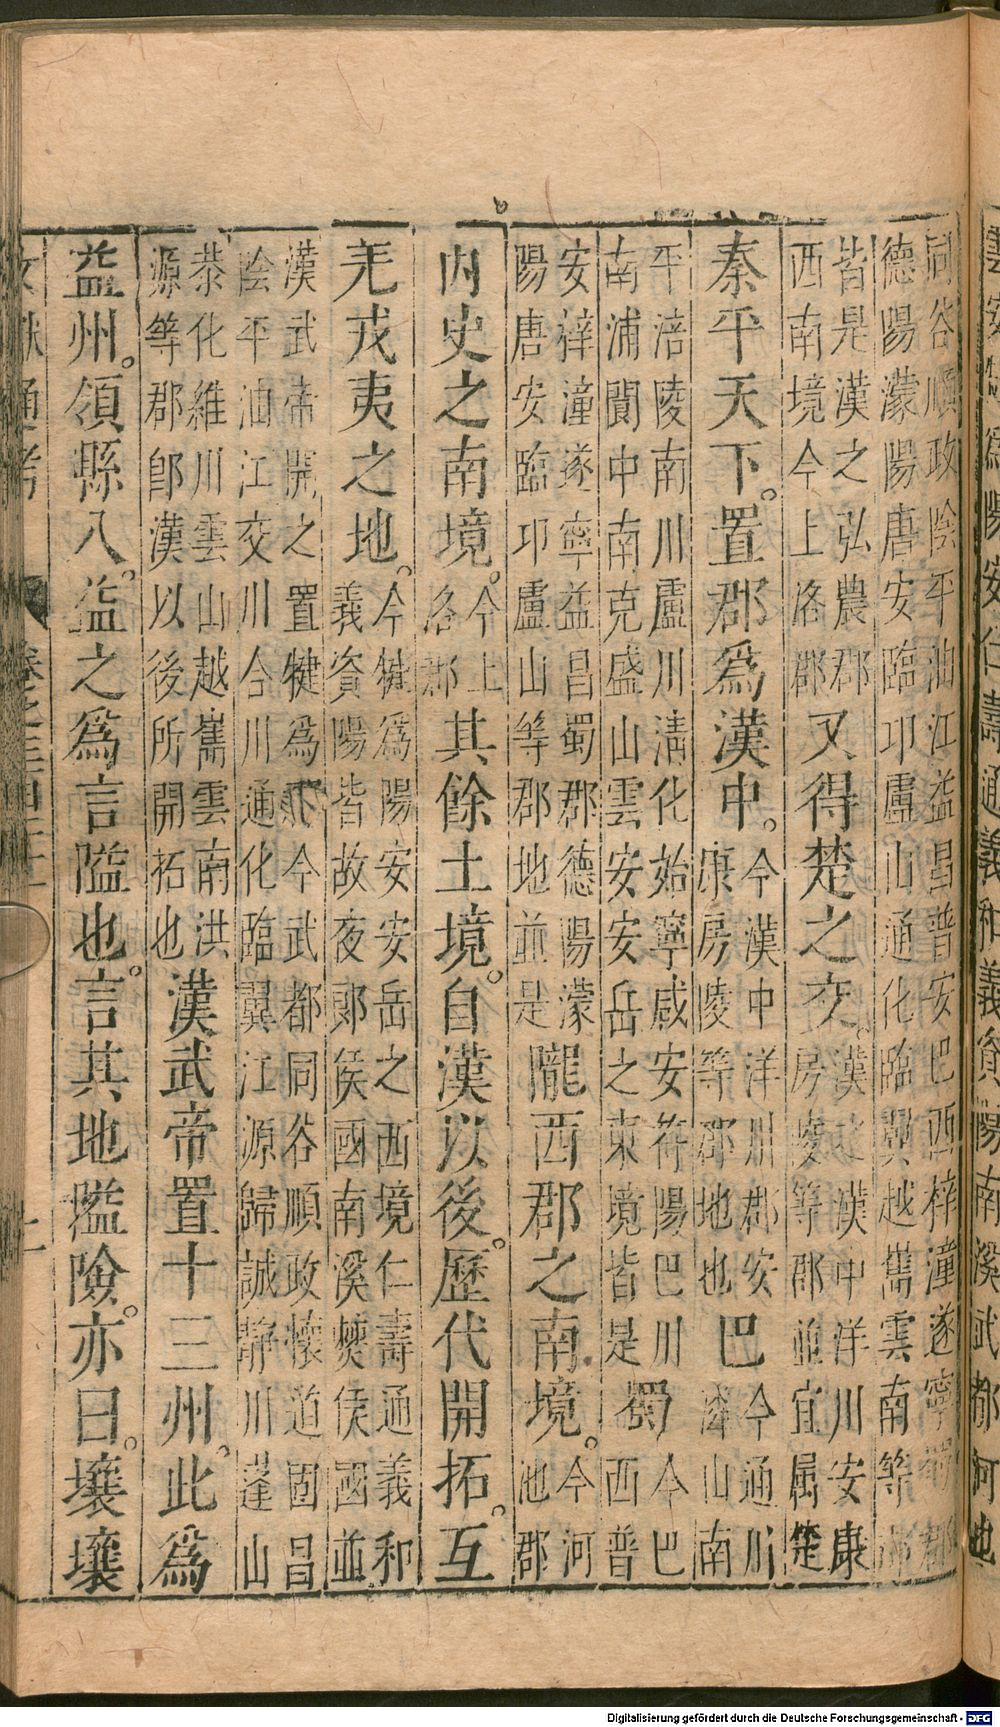 陽安仁壽通義和義資陽南溪武都河池
同谷順政陰平油江益昌普安巴西梓潼遂寧蜀郡
德陽濛陽唐安臨卭盧山通化臨翼越雟雲南等郡
皆是漢之弘農郡西南境今上洛郡又得楚之交。漢之漢中洋川安康房陵等郡並宜屬楚
秦平天下。置郡爲漢中。今漢中洋川郡安康房陵等郡地也巴今通川潾山南
平涪陵南川盧川清化始寧咸安符陽巴川南浦閬中南克盛山雲安安岳之東境皆是蜀今巴西普
安梓潼遂寧益昌蜀郡德陽濛陽唐安臨卭盧山等郡地並是隴西郡之南境。今河池郡
內史之南境。今上洛郡其餘土境。自漢以後。歷代開拓。互
羌戎夷之地。今犍爲陽安安岳之西境仁壽通義和義資陽皆故夜郞侯國南溪僰侯國並
漢武帝開之置犍爲郡今武都同谷順政懷道固昌
陰平油江交川合川通化臨翼江源歸誠靜川蓬山
恭化維川雲山越雟雲南洪源等郡卽漢以後所開拓也漢武帝置十三州。此爲
益州。領縣八。益之爲言隘也。言其地隘險。亦曰。壤壤
文獻通考
Digitalisierung gefördert durch die Deutsche Forschungsgemeinschaft - DFG